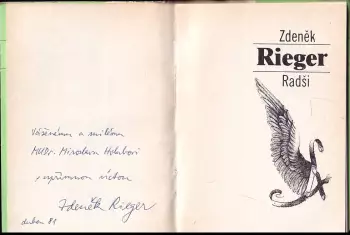 Váženému a milému
MUDr. Miroslavu Holubovi
s upřímnou úctou
Zdeněk Rieger
duben 89
Zdeněk
Rieger
Radši